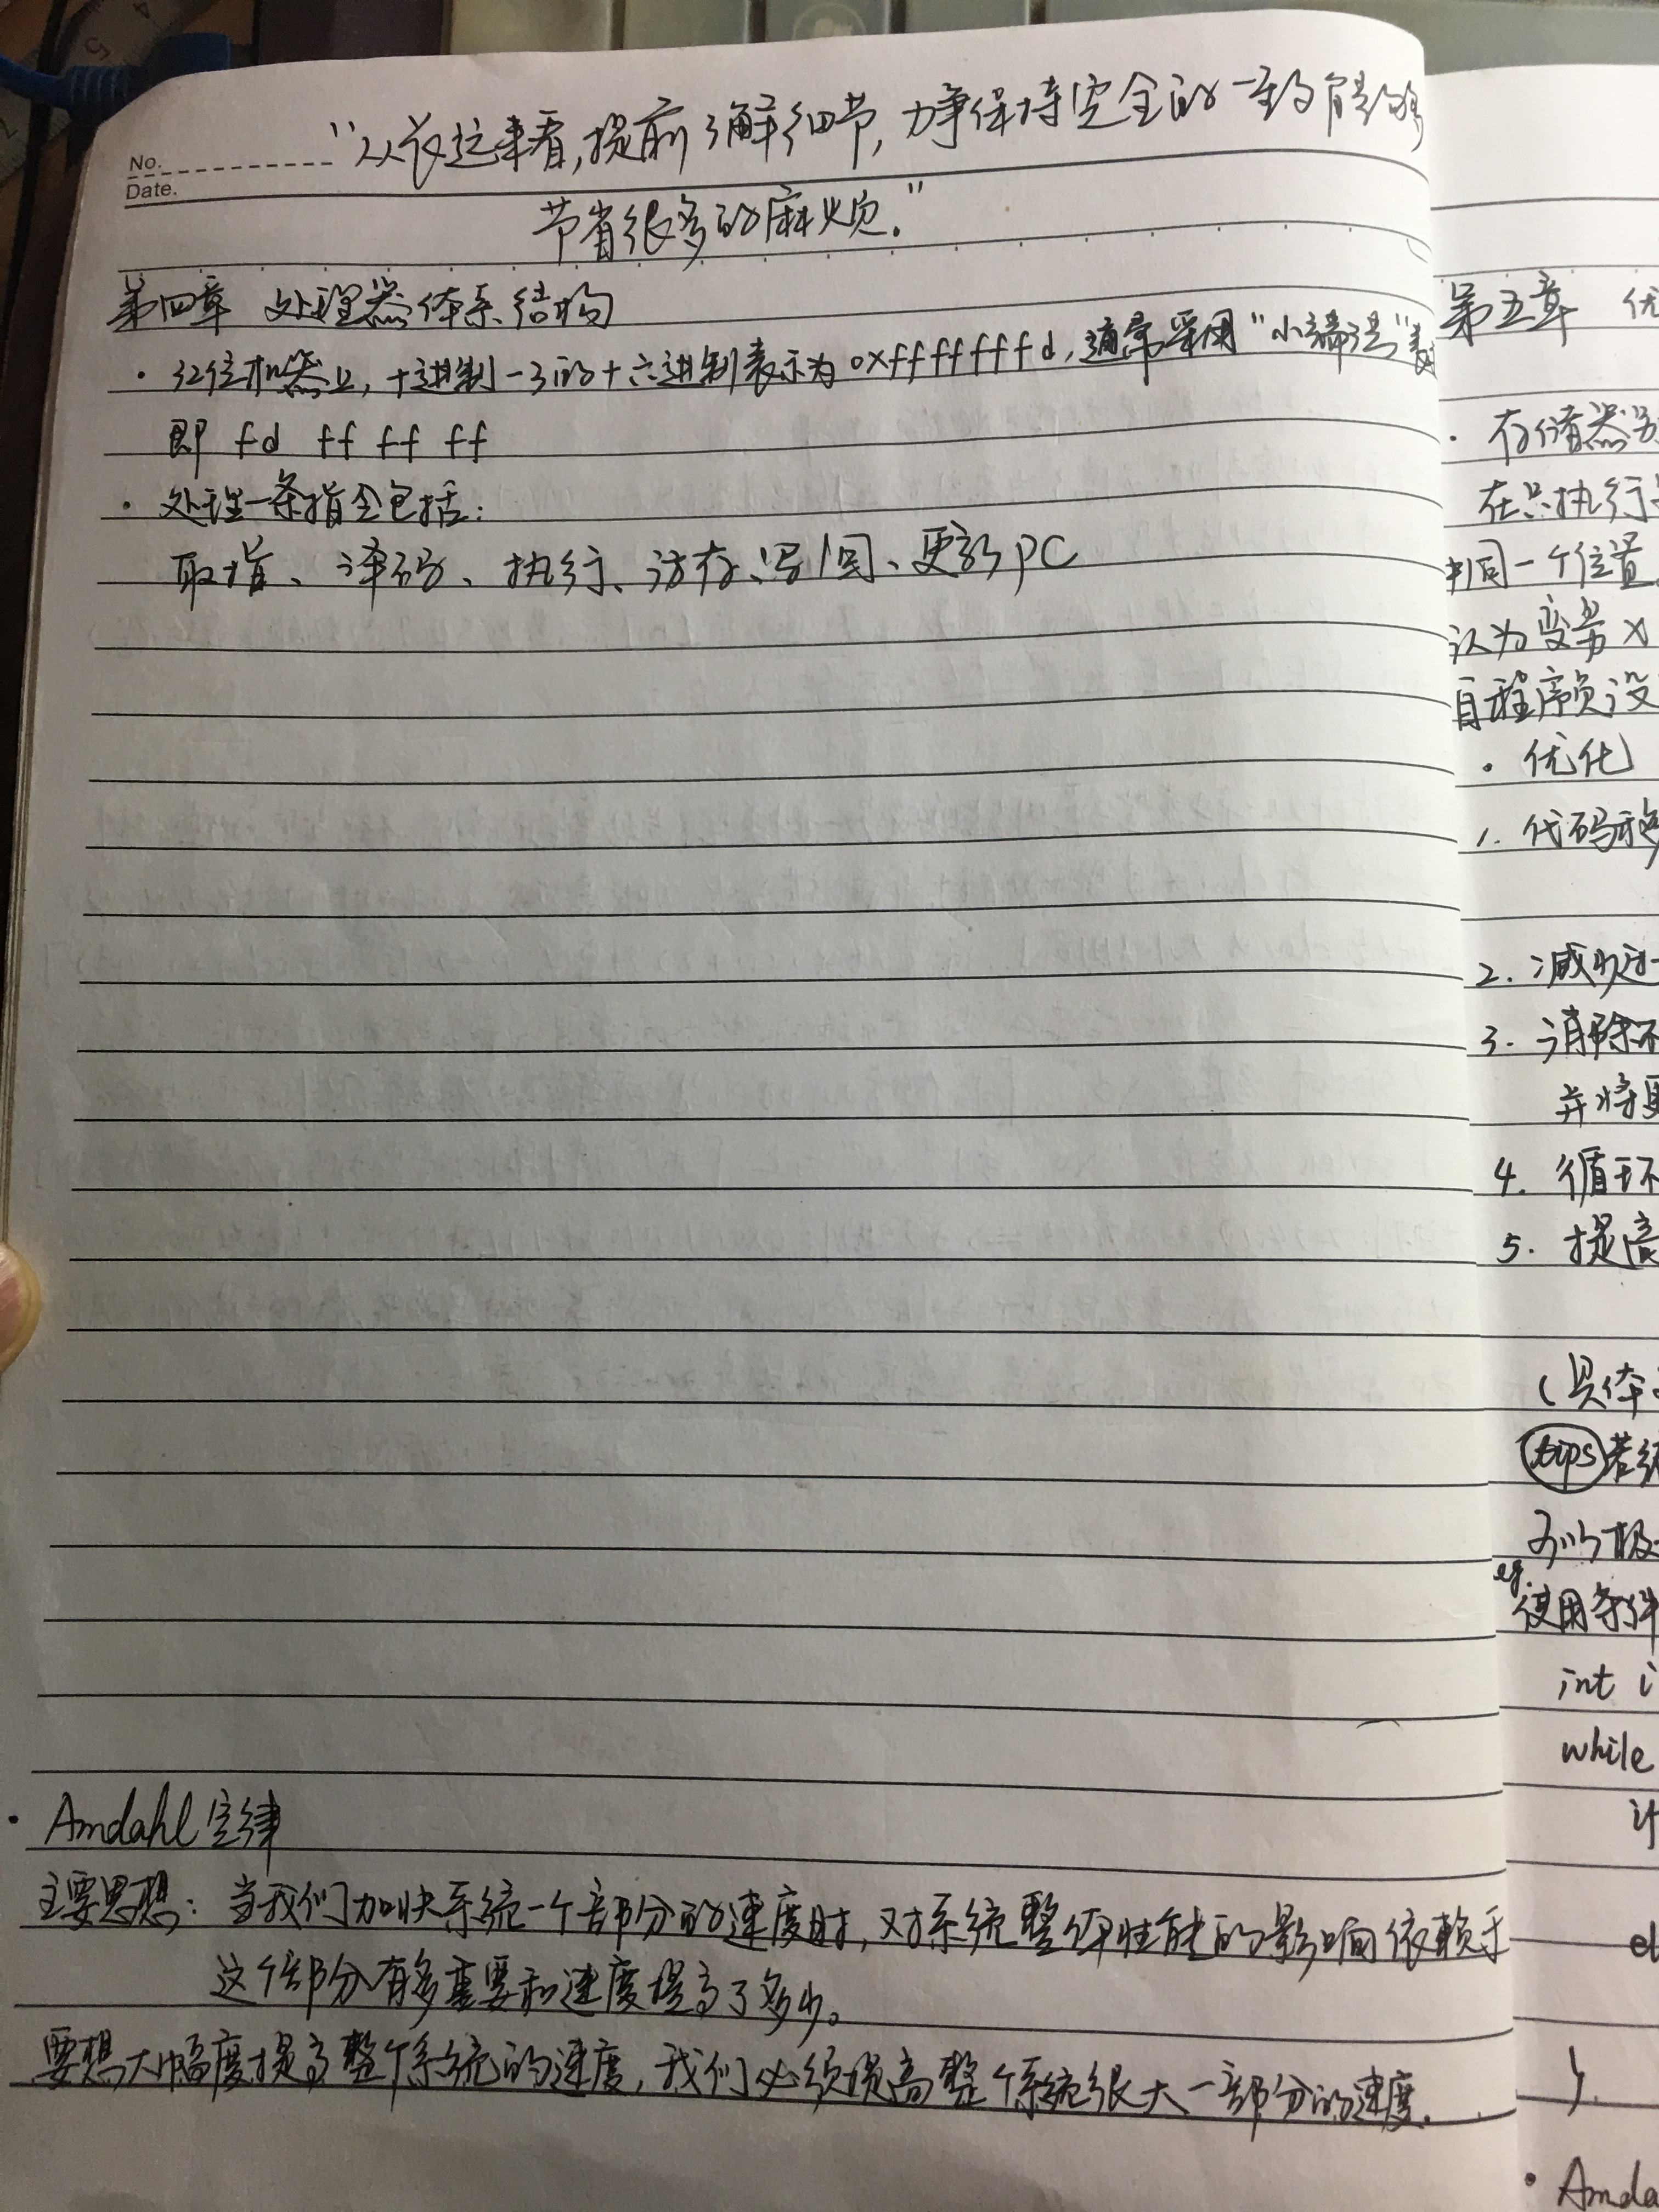 No.
Date.
"从长远来看,提前了解细节,力争保持完全的一致能够
节省很多的麻烦."
第四章 处理器体系结构
· 32位机器上,十进制-3的十六进制表示为0xfffffffd,通常采用"小端法"表
即 fd ff ff ff
· 处理一条指令包括:
取指、译码、执行、访存、写回、更新PC
· Amdahl定律
主要思想:当我们加快系统一个部分的速度时,对系统整体性能的影响依赖于
这个部分有多重要和速度提高了多少。
要想大幅度提高整个系统的速度,我们必须提高整个系统很大一部分的速度.
第五章 优
· 存储器别
在只执行
中同一个位置
认为变量x
自程序员没
· 优化
1. 代码移
2. 减少过
3. 消除不
并将
4. 循环
5. 提高
(具体
tips 若
可以极
eg.
使用条件
int i
while
if
el
}
· Amda